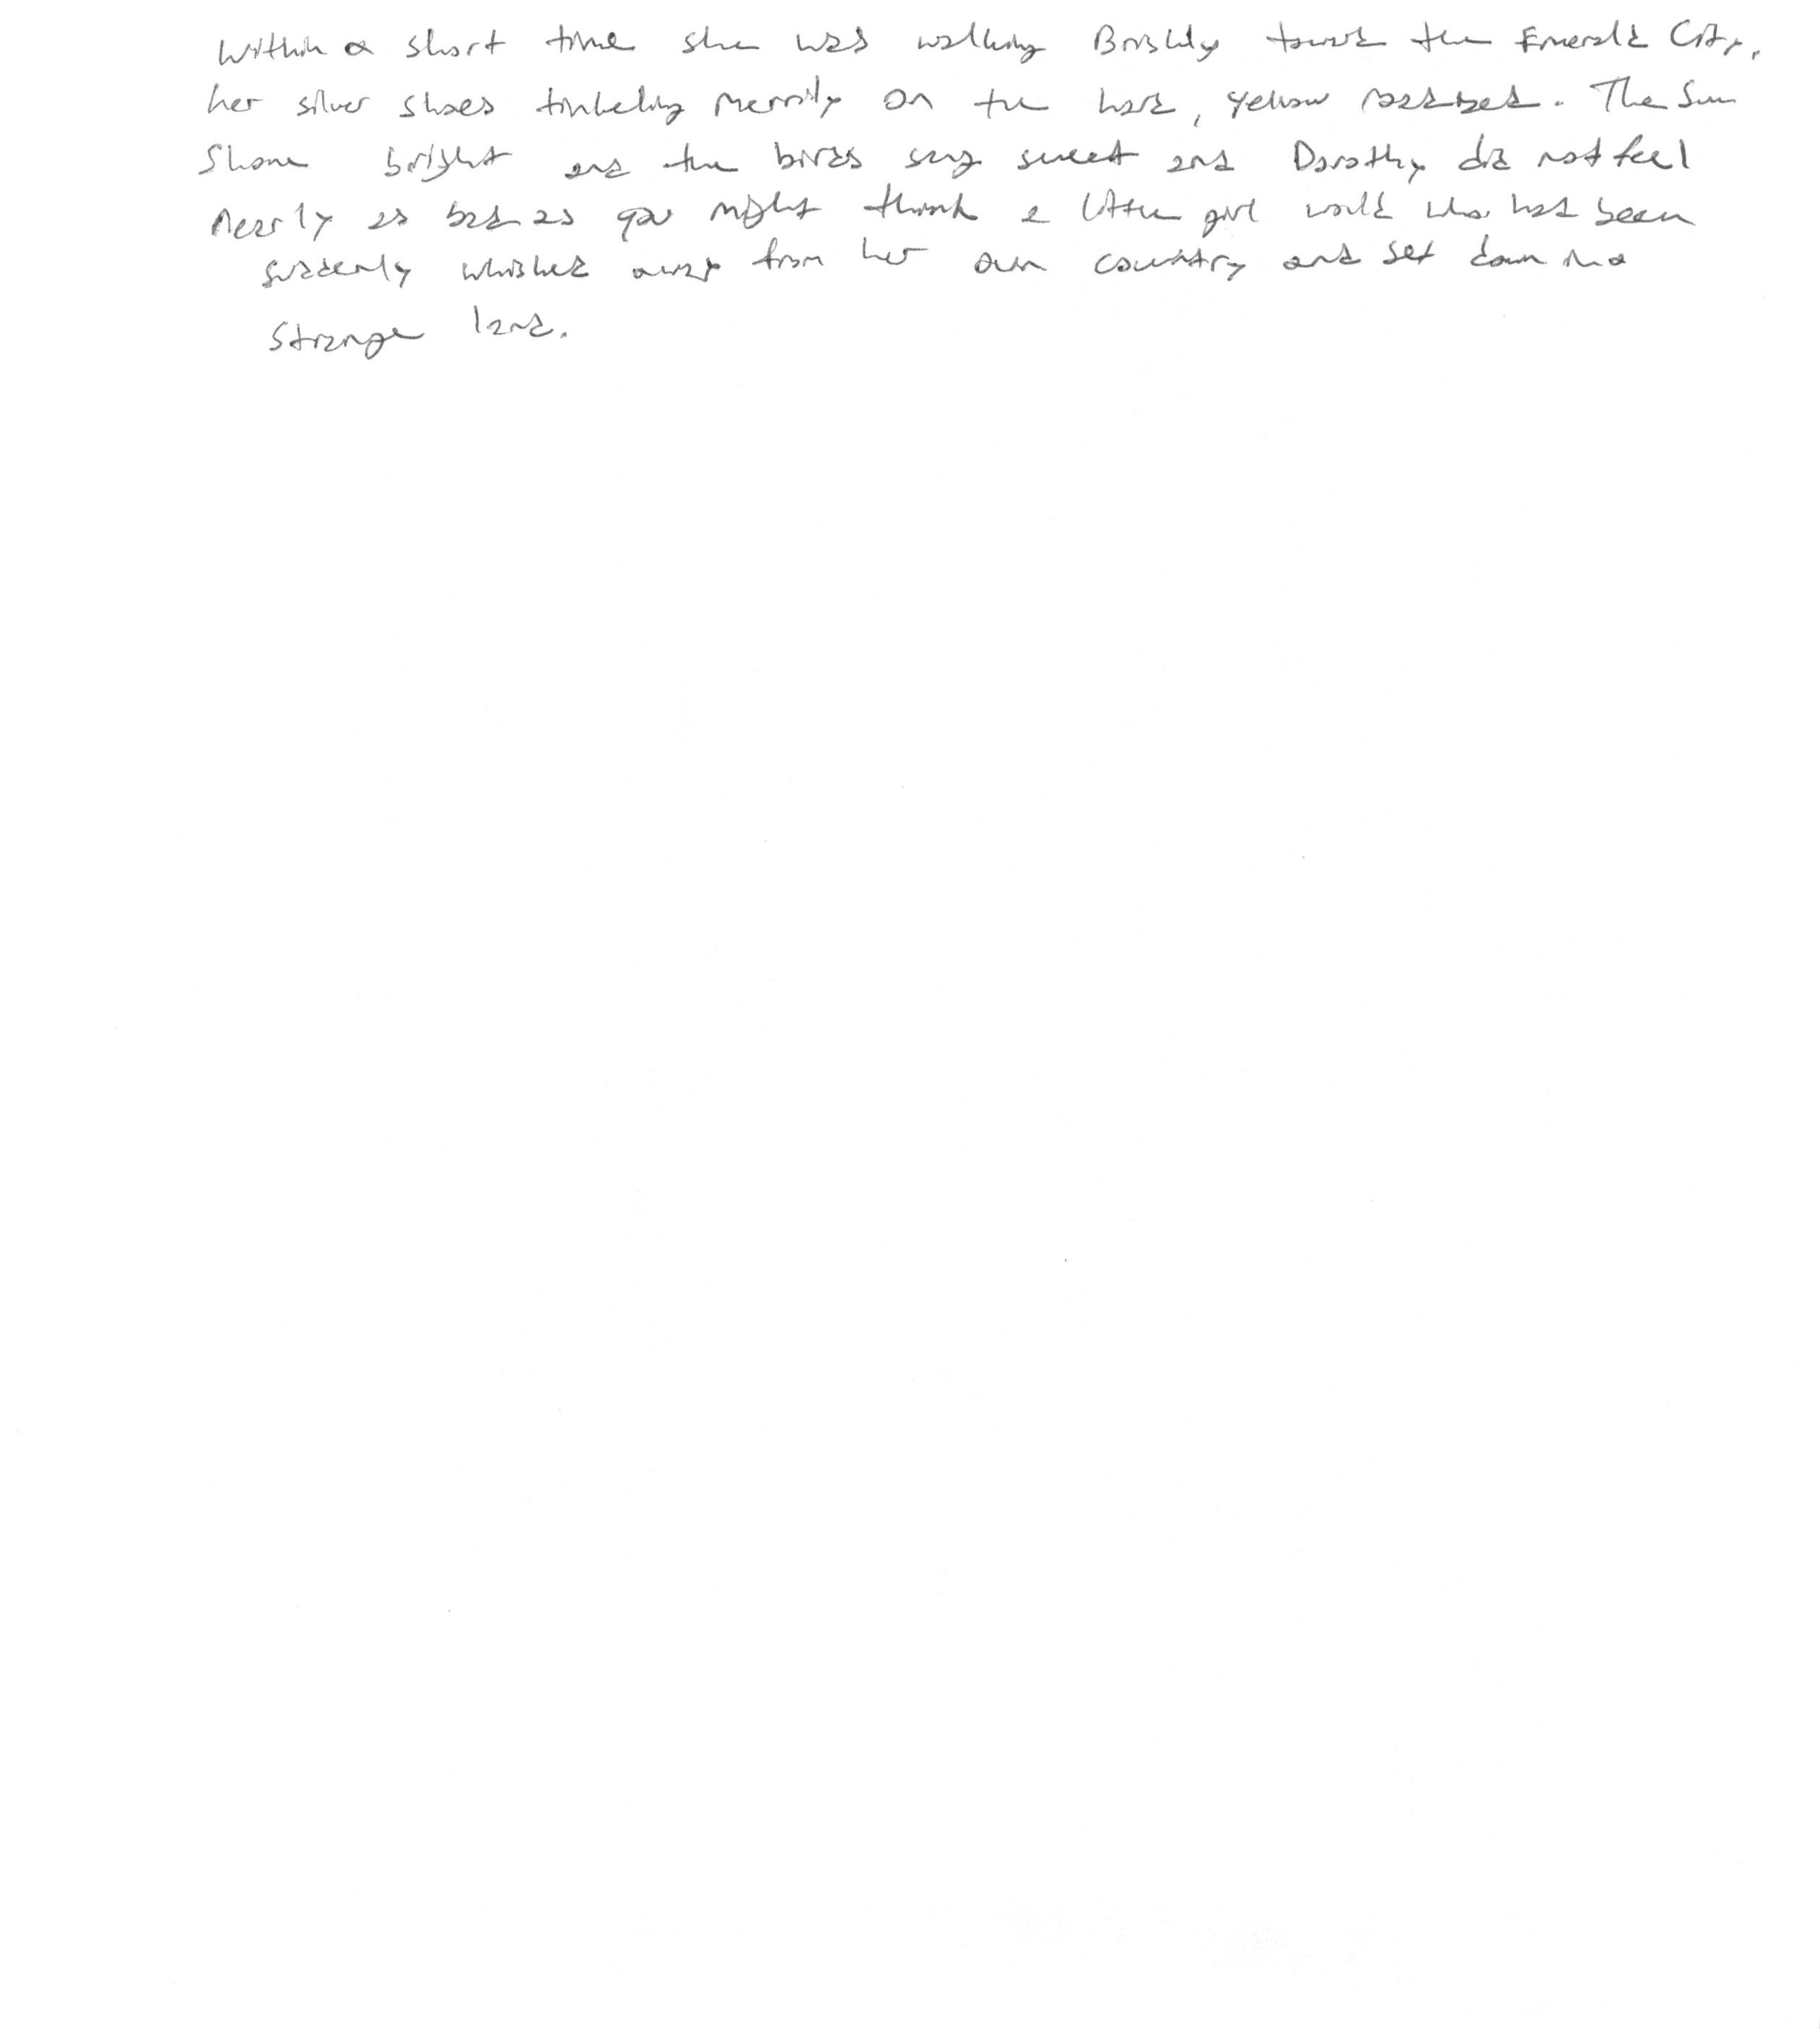 Within a short time she was walking Briskly toward the Emerald City,
her silver shoes tinkeling merrily on the hard, yellow roadbed. The Sun
Shone bright and the birds sang sweet and Dorothy did not feel
nearly as bad as you might think a little girl would who had been
suddenly whisked away from her own country and set down in a
strange land.